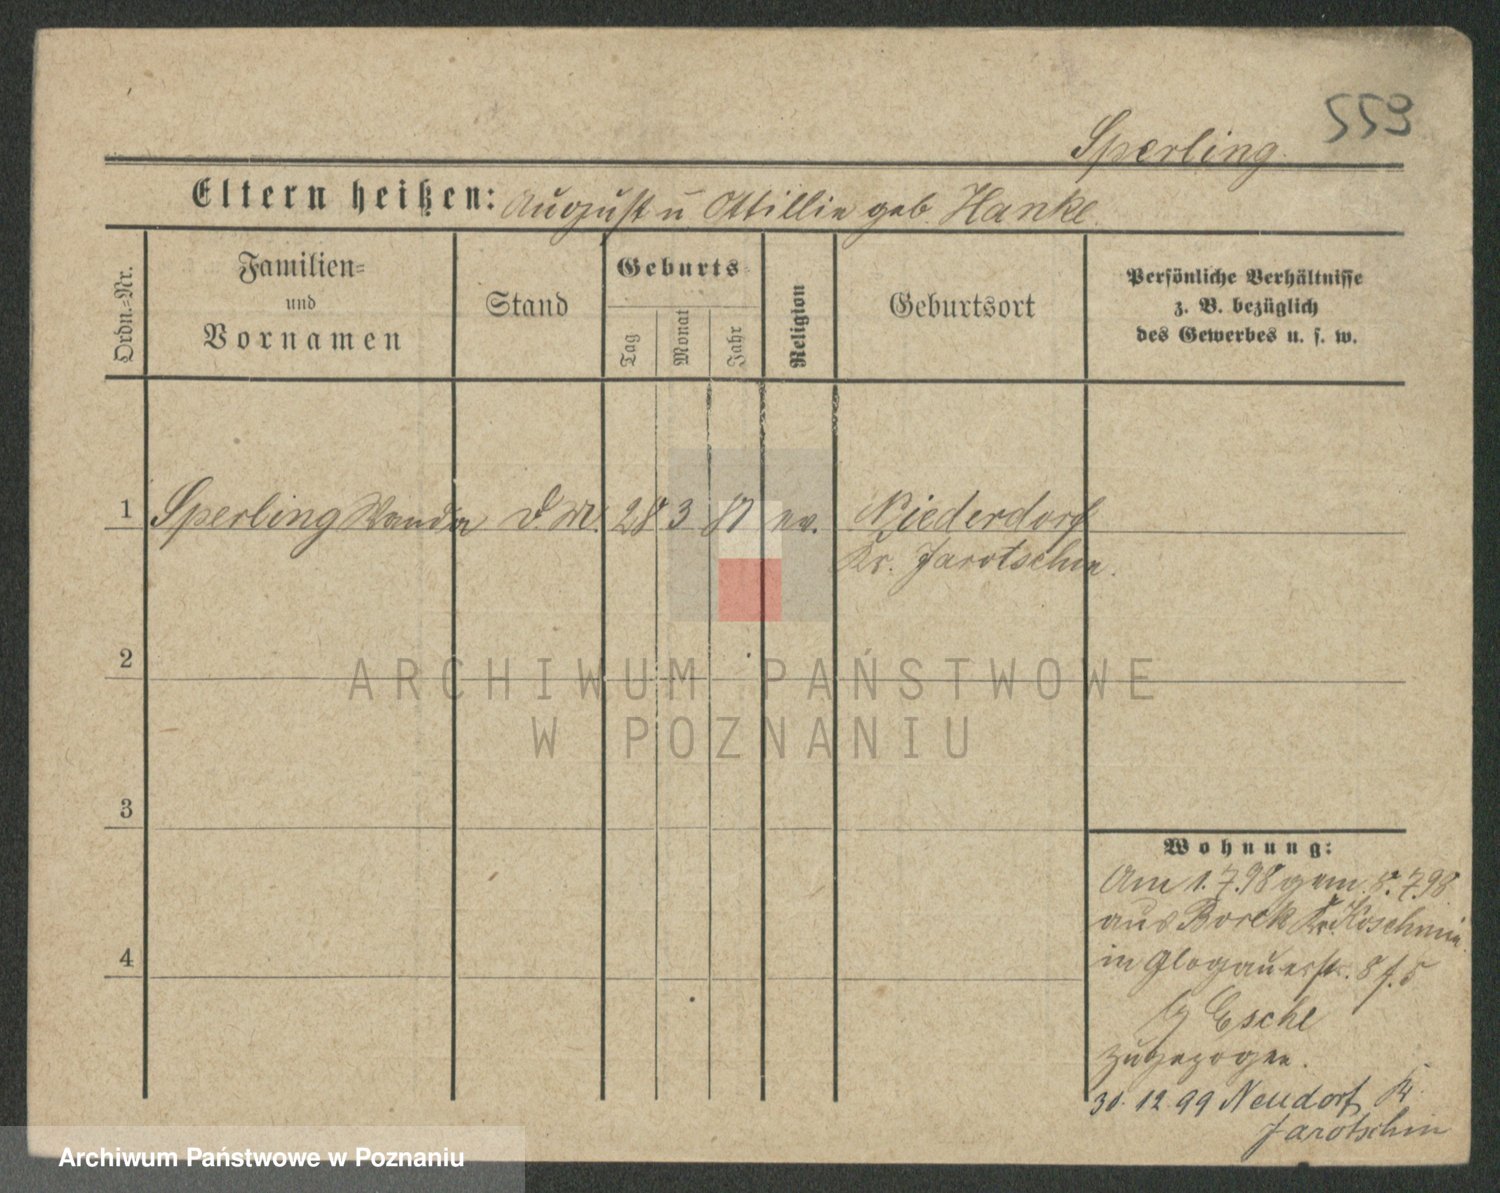 559
Sperling.
Eltern heißen: August u Ottillie geb. Hanke.
Ordn.=Nr.
Familien=
und
Vornamen
Stand
Geburts=
Tag
Monat
Jahr
Religion
Geburtsort
Persönliche Verhältnisse
z. B. bezüglich
des Gewerbes u. s. w.
1 Sperling Wanda D. M. 28 3 81 ev. Niederdorf
Kr. Jarotschin.
2
3
4
Wohnung:
Am 1.7.98 gem. 8.7.98
aus Borek Kr. Koschmin
in Glogauerstr. 8
Esche
zugezogen.
30. 12. 99 Neudorf Kr.
Jarotschin
ARCHIWUM PAŃSTWOWE
W POZNANIU
Archiwum Państwowe w Poznaniu